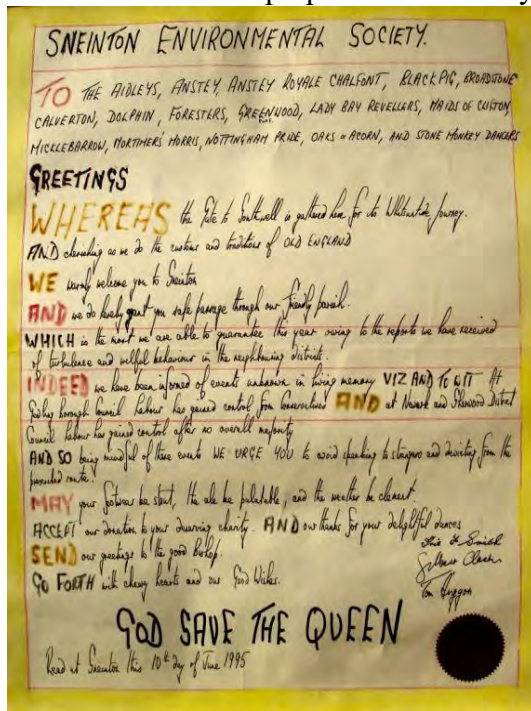 SNEINTON ENVIRONMENTAL SOCIETY.
TO THE AIDLEYS, ANSTEY, ANSTEY ROYALE CHALFONT, BLACK PIG, BROADSTONE
CALVERTON, DOLPHIN, FORESTERS, GREENWOOD, LADY BAY REVELLERS, MAIDS OF CLIFTON,
MICKLEBARROW, MORTIMERS' MORRIS, NOTTINGHAM PRIDE, OAKS & ACORN, AND STONE MONKEY DANCERS
GREETINGS
WHEREAS the Gate to Southwell is gathered here for its Whitsuntide Journey.
AND cherishing as we do the customs and traditions of OLD ENGLAND
WE warmly welcome you to Sneinton
AND we do hereby grant you safe passage through our friendly parish.
WHICH is the most we are able to guarantee this year owing to the reports we have received
of turbulence and wilful behaviour in the neighbouring districts.
INDEED we have been informed of events unknown in living memory VIZ AND TO WIT At
Gedling borough Council Labour has gained control from Conservatives AND at Newark and Sherwood District
Council Labour has gained control after no overall majority
AND SO being mindful of these events WE URGE YOU to avoid speaking to strangers and deviating from the
prescribed route.
MAY your footwear be stout, the ale be palatable, and the weather be clement.
ACCEPT our donation to your deserving charity. AND our thanks for your delightful dances
SEND our greetings to the good Bishop.
GO FORTH with cheery hearts and our Good Wishes.
Gilbert Clarke
Tom Huggon
GOD SAVE THE QUEEN
Read at Sneinton this 10th day of June 1995